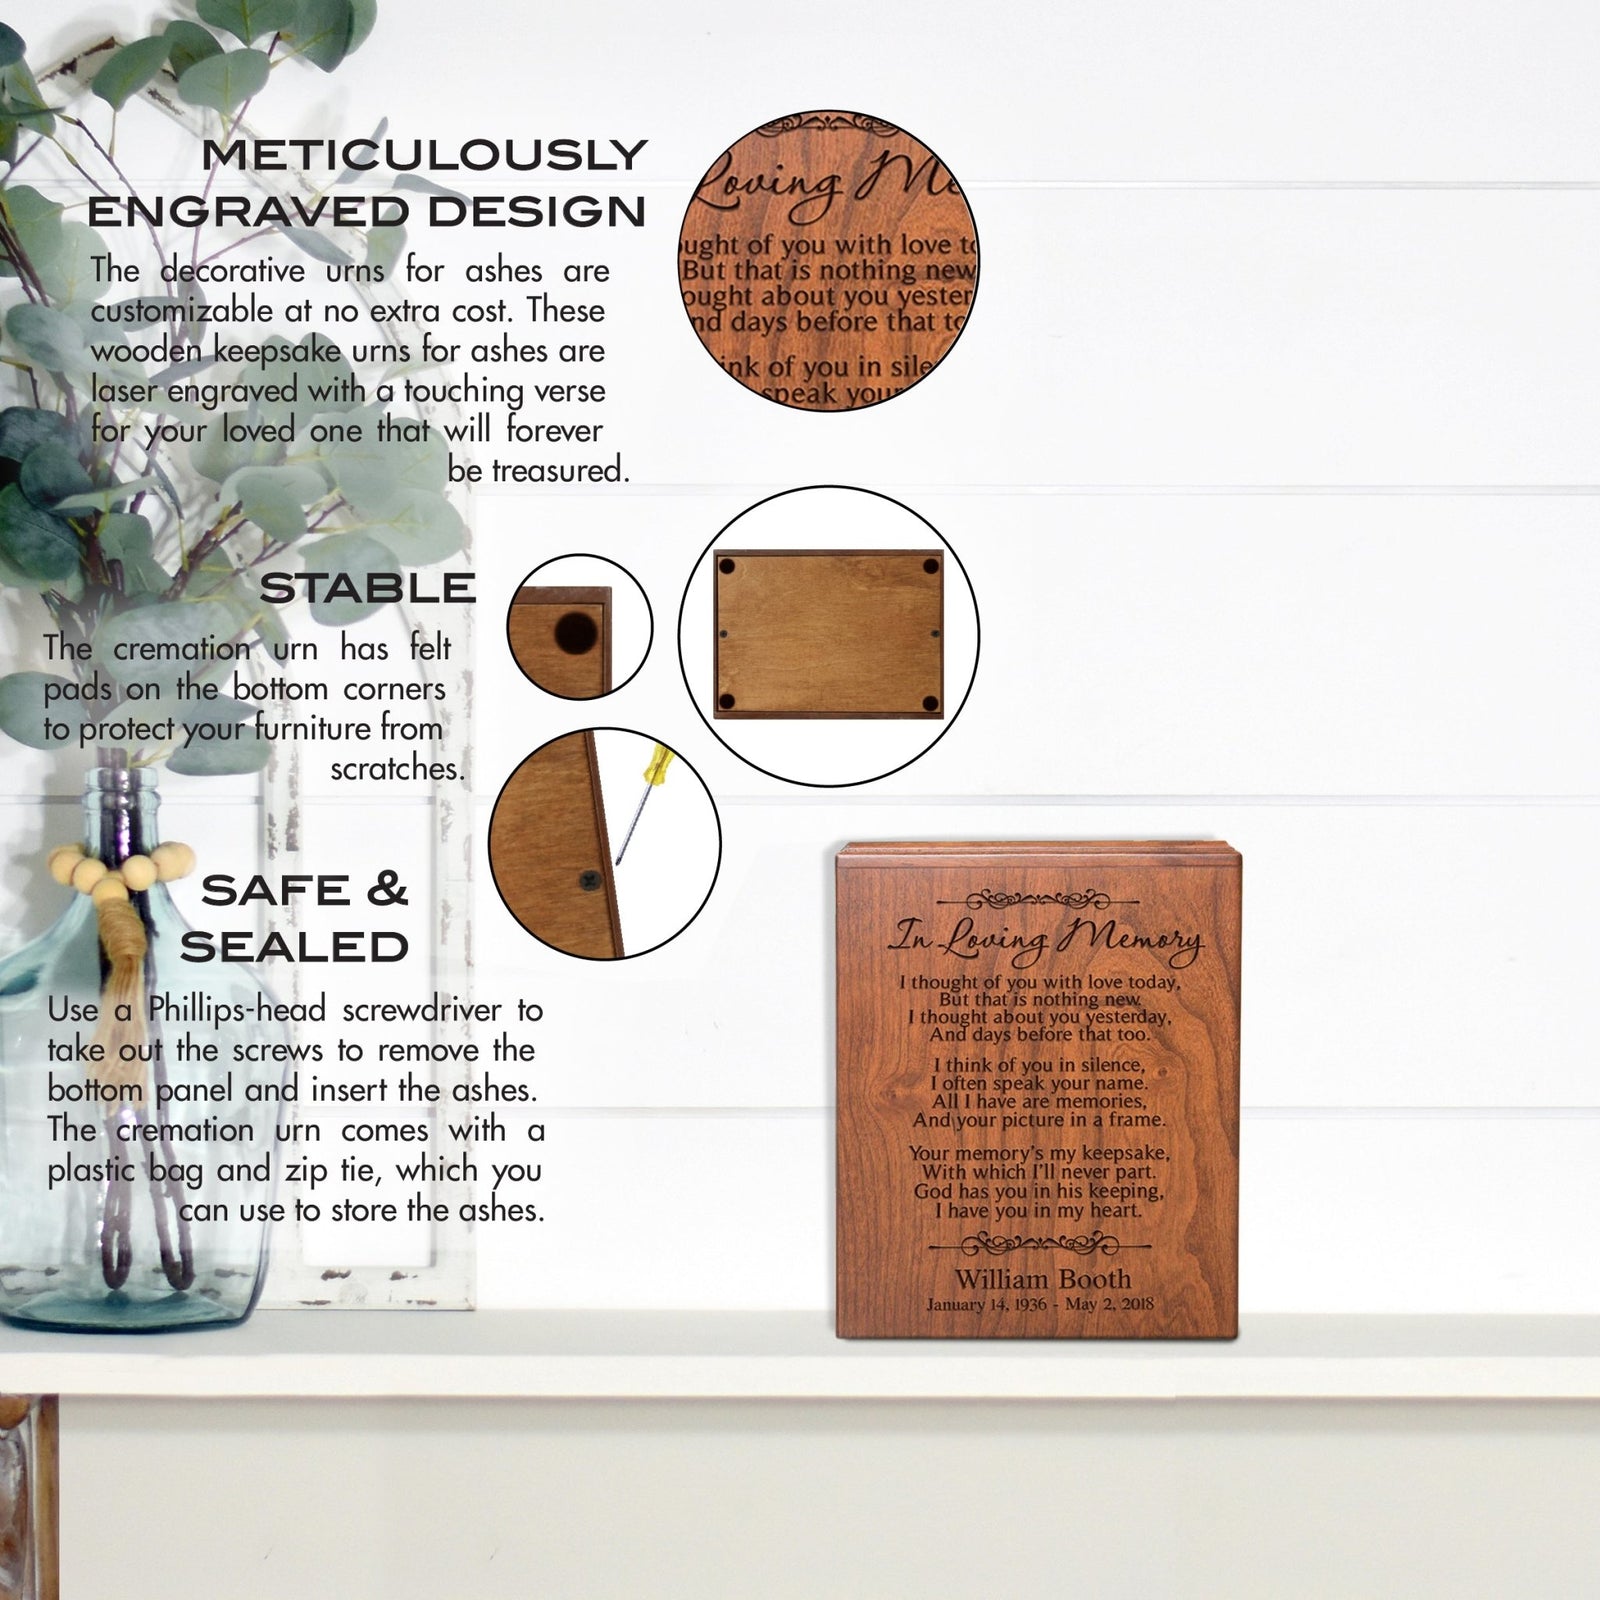 METICULOUSLY
ENGRAVED DESIGN
The decorative urns for ashes are
customizable at no extra cost. These
wooden keepsake urns for ashes are
laser engraved with a touching verse
for your loved one that will forever
be treasured.
Loving Me
ught of you with love to
But that is nothing new
ought about you yester
nd days before that to
ink of you in sile
speak your
STABLE
The cremation urn has felt
pads on the bottom corners
to protect your furniture from
scratches.
SAFE &
SEALED
Use a Phillips-head screwdriver to
take out the screws to remove the
bottom panel and insert the ashes.
The cremation urn comes with a
plastic bag and zip tie, which you
can use to store the ashes.
In Loving Memory
I thought of you with love today,
But that is nothing new
I thought about you yesterday,
And days before that too.
I think of you in silence,
I often speak your name.
All I have are memories,
And your picture in a frame.
Your memory's my keepsake,
With which I'll never part.
God has you in his keeping,
I have you in my heart.
William Booth
January 14, 1936 - May 2, 2018